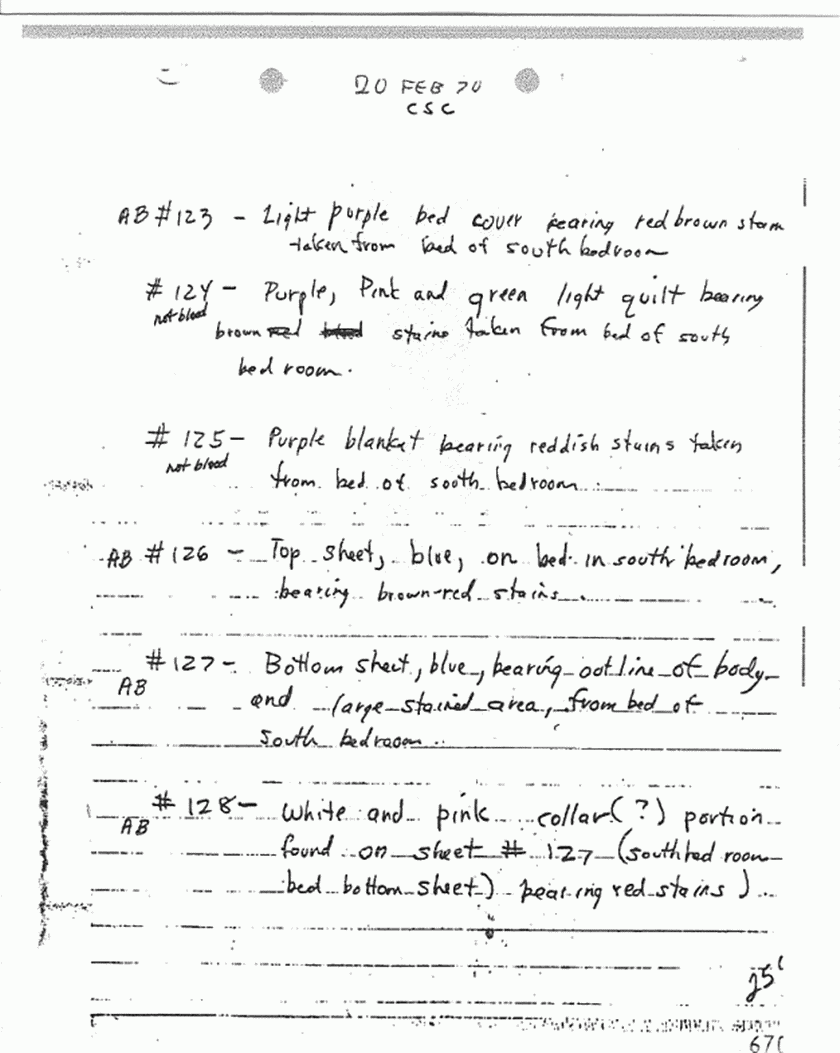 20 FEB 70
CSC
AB #123 - Light purple bed cover bearing red brown stain
taken from bed of south bedroom
#124 - Purple, Pink and green light quilt bearing
not blood
brown red stains taken from bed of south
bed room.
#125 - Purple blanket bearing reddish stains taken
not blood
from bed of south bedroom
AB #126 - Top sheet, blue, on bed in south bedroom,
bearing brown-red stains.
#127 - Bottom sheet, blue, bearing outline of body
AB
and large stained area, from bed of
south bedroom.
#128 - White and pink collar(?) portion
AB
found on sheet #127 (south bed room
bed bottom sheet) bearing red stains)